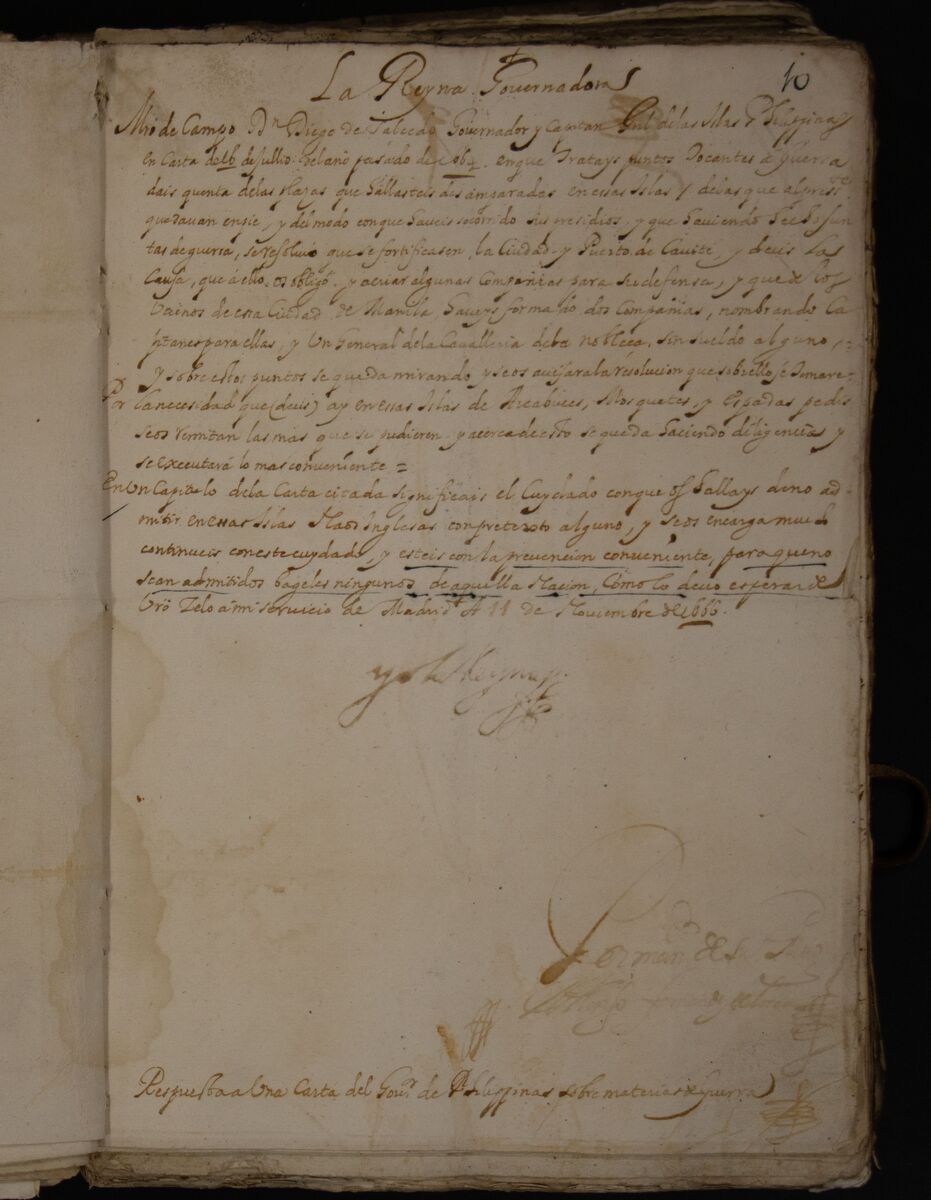 10
La Reyna Governadora
Mro de Campo Dn Diego de Salcedo Governador y Capitan Gnl. de las Islas Philippinas
en Carta de 16 de Jullio del año pasado de 664 en que tratays puntos tocantes a guerra
dais quenta de las plazas que hallasteis desamparadas en essas Islas / de las que al presste
quedavan en pie, y del modo con que haveis socorrido sus presidios, y que haviendo hecho Jun
tas de guerra, se resolvio que se fortificasen la Ciudad y Puerto de Cavite, y decis las
Causas, que a ello os obligo, y acriar algunas Compañias para su defensa, y que de los
Vecinos de esta Ciudad de Manila haveys formado dos Compañias, nombrando Ca
ptanes para ellas, y Un General de la Cavalleria de la nobleça, sin sueldo alguno,=
y sobre estos puntos se queda mirando, y se os avisara la resolucion que sobre ello se tomare=
Por la necesidad que (decis) ay en essas Islas de Arcabuces, Mosquetes, y espadas pedis
se os remitan las mas que se pudieren y acerca de esto se queda haciendo diligencias y
se executará lo mas conveniente =
En Un Capitulo de la Carta citada significais el Cuydado con que os hallays de no ad-
mitir en essas Islas Naos Inglesas con pretexto alguno, y se os encarga mucho
continueis con este cuydado, y esteis con la prevencion conveniente, para que no
sean admitidos bageles ningunos de aquella Nacion, Como lo devo esperar de
Vro Zelo a mi servicio de Madrid A 11 de Noviembre de 1666.
yo la Reyna
Por mando de su Magd
Respuesta a Una Carta del Govr de Philippinas sobre materias de Guerra